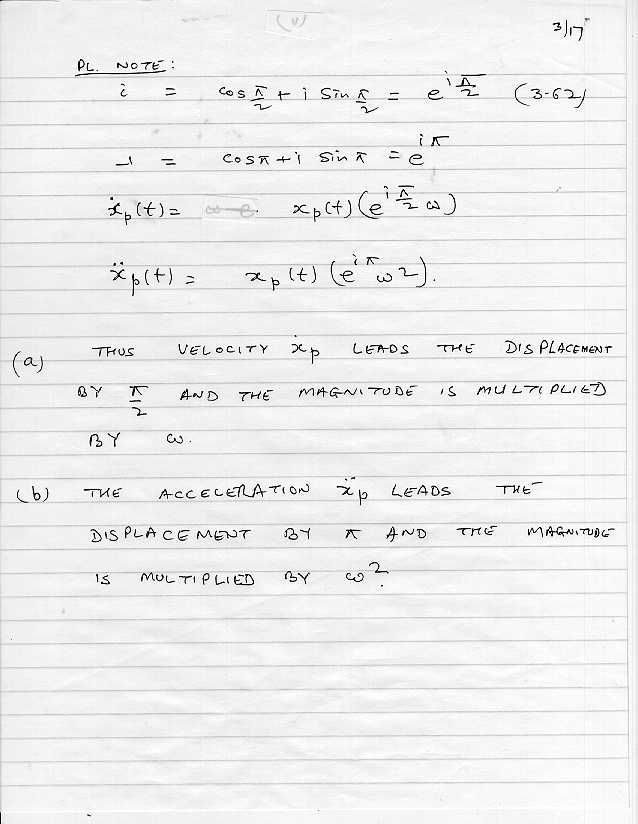 (v)
3/17
PL. NOTE :
i = cos π/2 + i Sin π/2 = e^{i π/2} (3-62)
-1 = cos π + i Sin π = e^{i π}
ẋp(t) = xp(t) (e^{i π/2} ω)
ẍp(t) = xp(t) (e^{i π} ω²).
(a) THUS VELOCITY ẋp LEADS THE DISPLACEMENT
BY π/2 AND THE MAGNITUDE IS MULTIPLIED
BY ω.
(b) THE ACCELERATION ẍp LEADS THE
DISPLACEMENT BY π AND THE MAGNITUDE
IS MULTIPLIED BY ω².